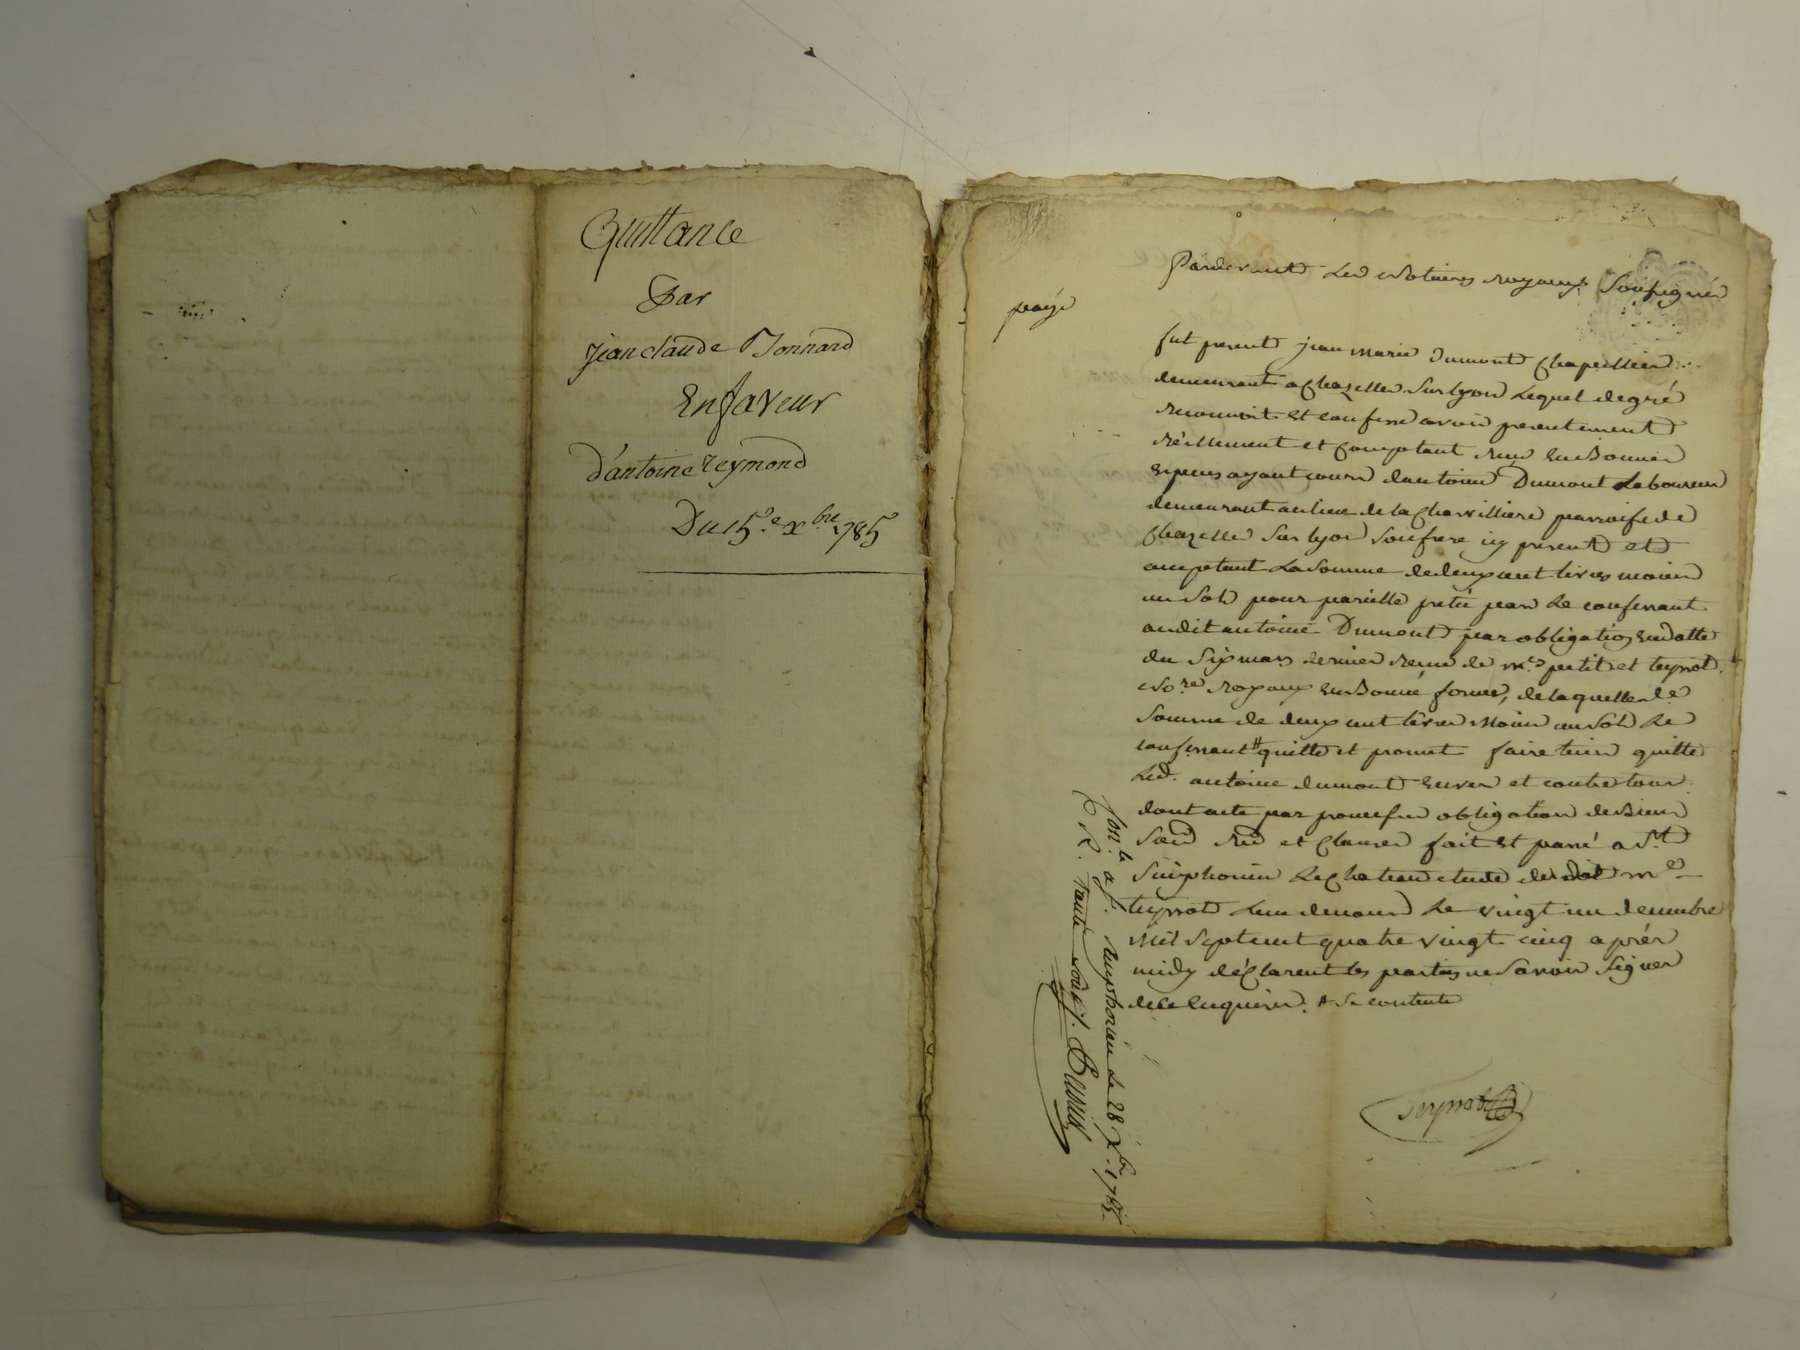 Quittance
Par
jean claude Bonnard
En faveur
d'antoine reymond
Du 15.e xbre 1785
payé
Pardevant Les Notaires royaux Soussigné
fut present jean marie Dumont Chapellier
demeurant a Chazelles Sur lyon Lequel de gré
reconnoit et confesse avoir presentement
réellement et comptant reçu En Bonnes
Especes ayant cours d'antoine Dumont Laboureur
demeurant au lieu de la parroisse de
Chazelle Sur lyon Son frere icy present et
acceptant La Somme de deux cent livres moien
un Sol pour pareille pretée par Le confessant
audit antoine Dumont par obligation En datte
du Six mars dernier recue de m.es petit et
No.re royaux En Bonne forme, de laquelle de
Somme de deux cent livres Moien un Sol Le
confessant # quitte et promet faire tenir quitte
Led. antoine dumont Envers et contre tous
dont acte par promesse obligation de Biens
et Clauses fait et passé a S.t
Simphorien Le chateau etude dudit m.e
Le vingt un decembre
Mil Sept cent quatre vingt cinq après
midy déclarent les parties ne Savoir Signer
de ce Enquises. # Se contente
Con.lé a S.t Simphorien Le 28 Xbre 1785